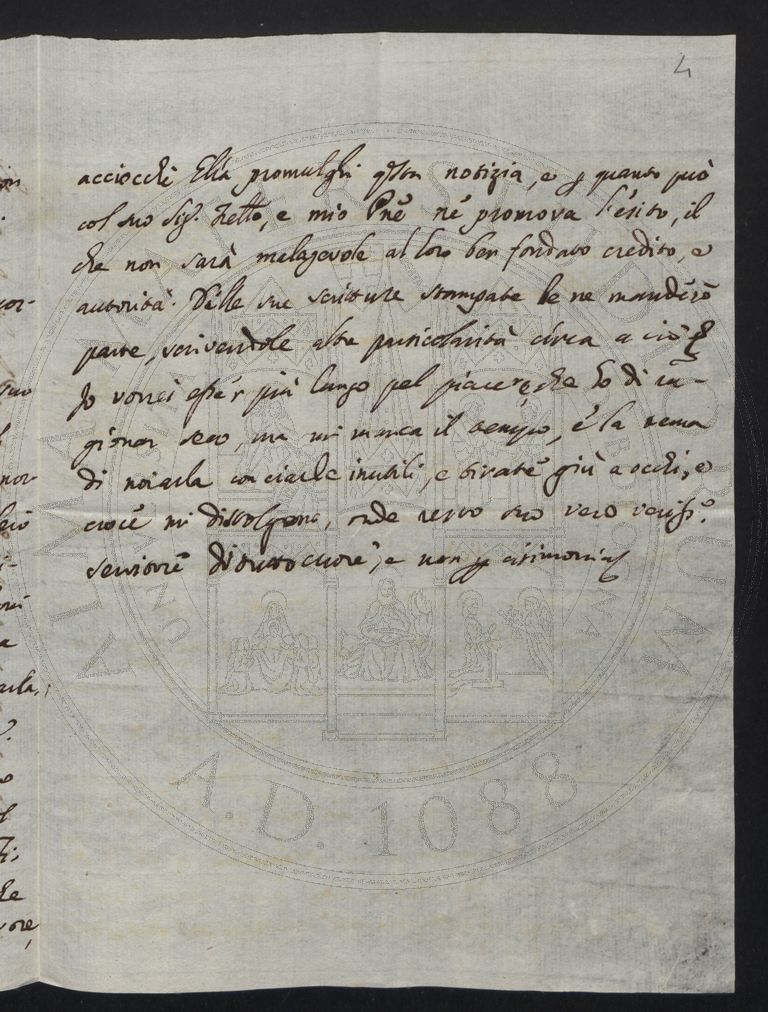 4
acciocchè Ella promulghi qsta notizia, e p quanto può
col suo Sig. Zetto, e mio Pne ne promova l'esito, il
che non sarà malagevole al loro ben fondato credito, e
autorità. Delle sue scritture stampate le ne manderò
parte, scrivendole altre particolarità circa a ciò
Io vorrei esser più lungo pel piacere, che ho di ra-
gionar seco, ma mi manca il tempo, e la tema
di noiarla con ciarle inutili, e
mi distolgono, onde resto suo vero
servitore di tutto cuore, e non p cirimonia
A.D. 1088